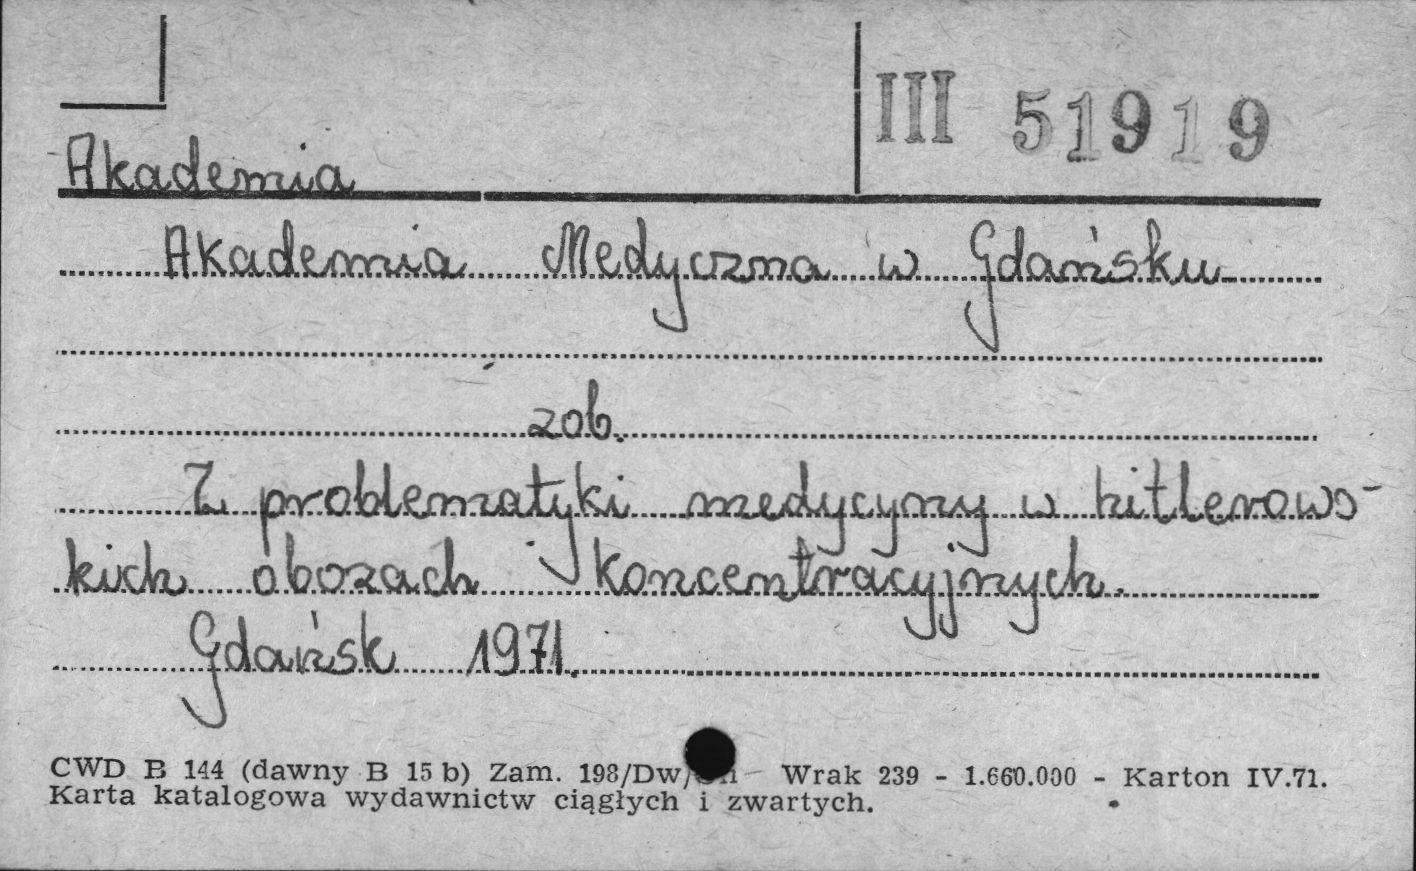 III 51919
Akademia
Akademia Medyczna w Gdańsku
zob.
Z problematyki medycyny w hitlerows-
kich obozach koncentracyjnych.
Gdańsk 1971.
CWD B 144 (dawny B 15 b) Zam. 198/Dw/ – Wrak 239 - 1.660.000 - Karton IV.71.
Karta katalogowa wydawnictw ciągłych i zwartych.